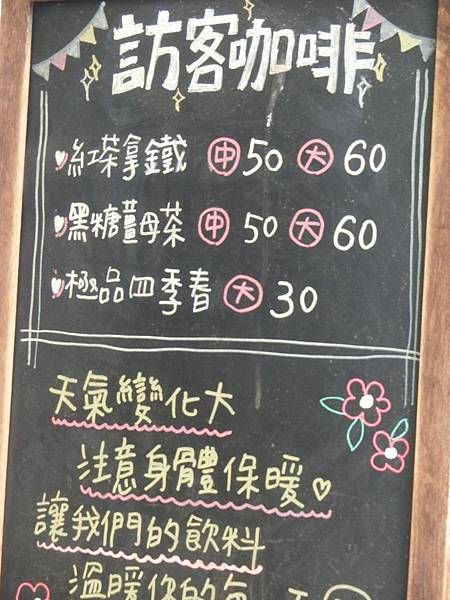 訪客咖啡
紅茶拿鐵 中 50 大 60
黑糖薑母茶 中 50 大 60
極品四季春 大 30
天氣變化大
注意身體保暖
讓我們的飲料
溫暖你的